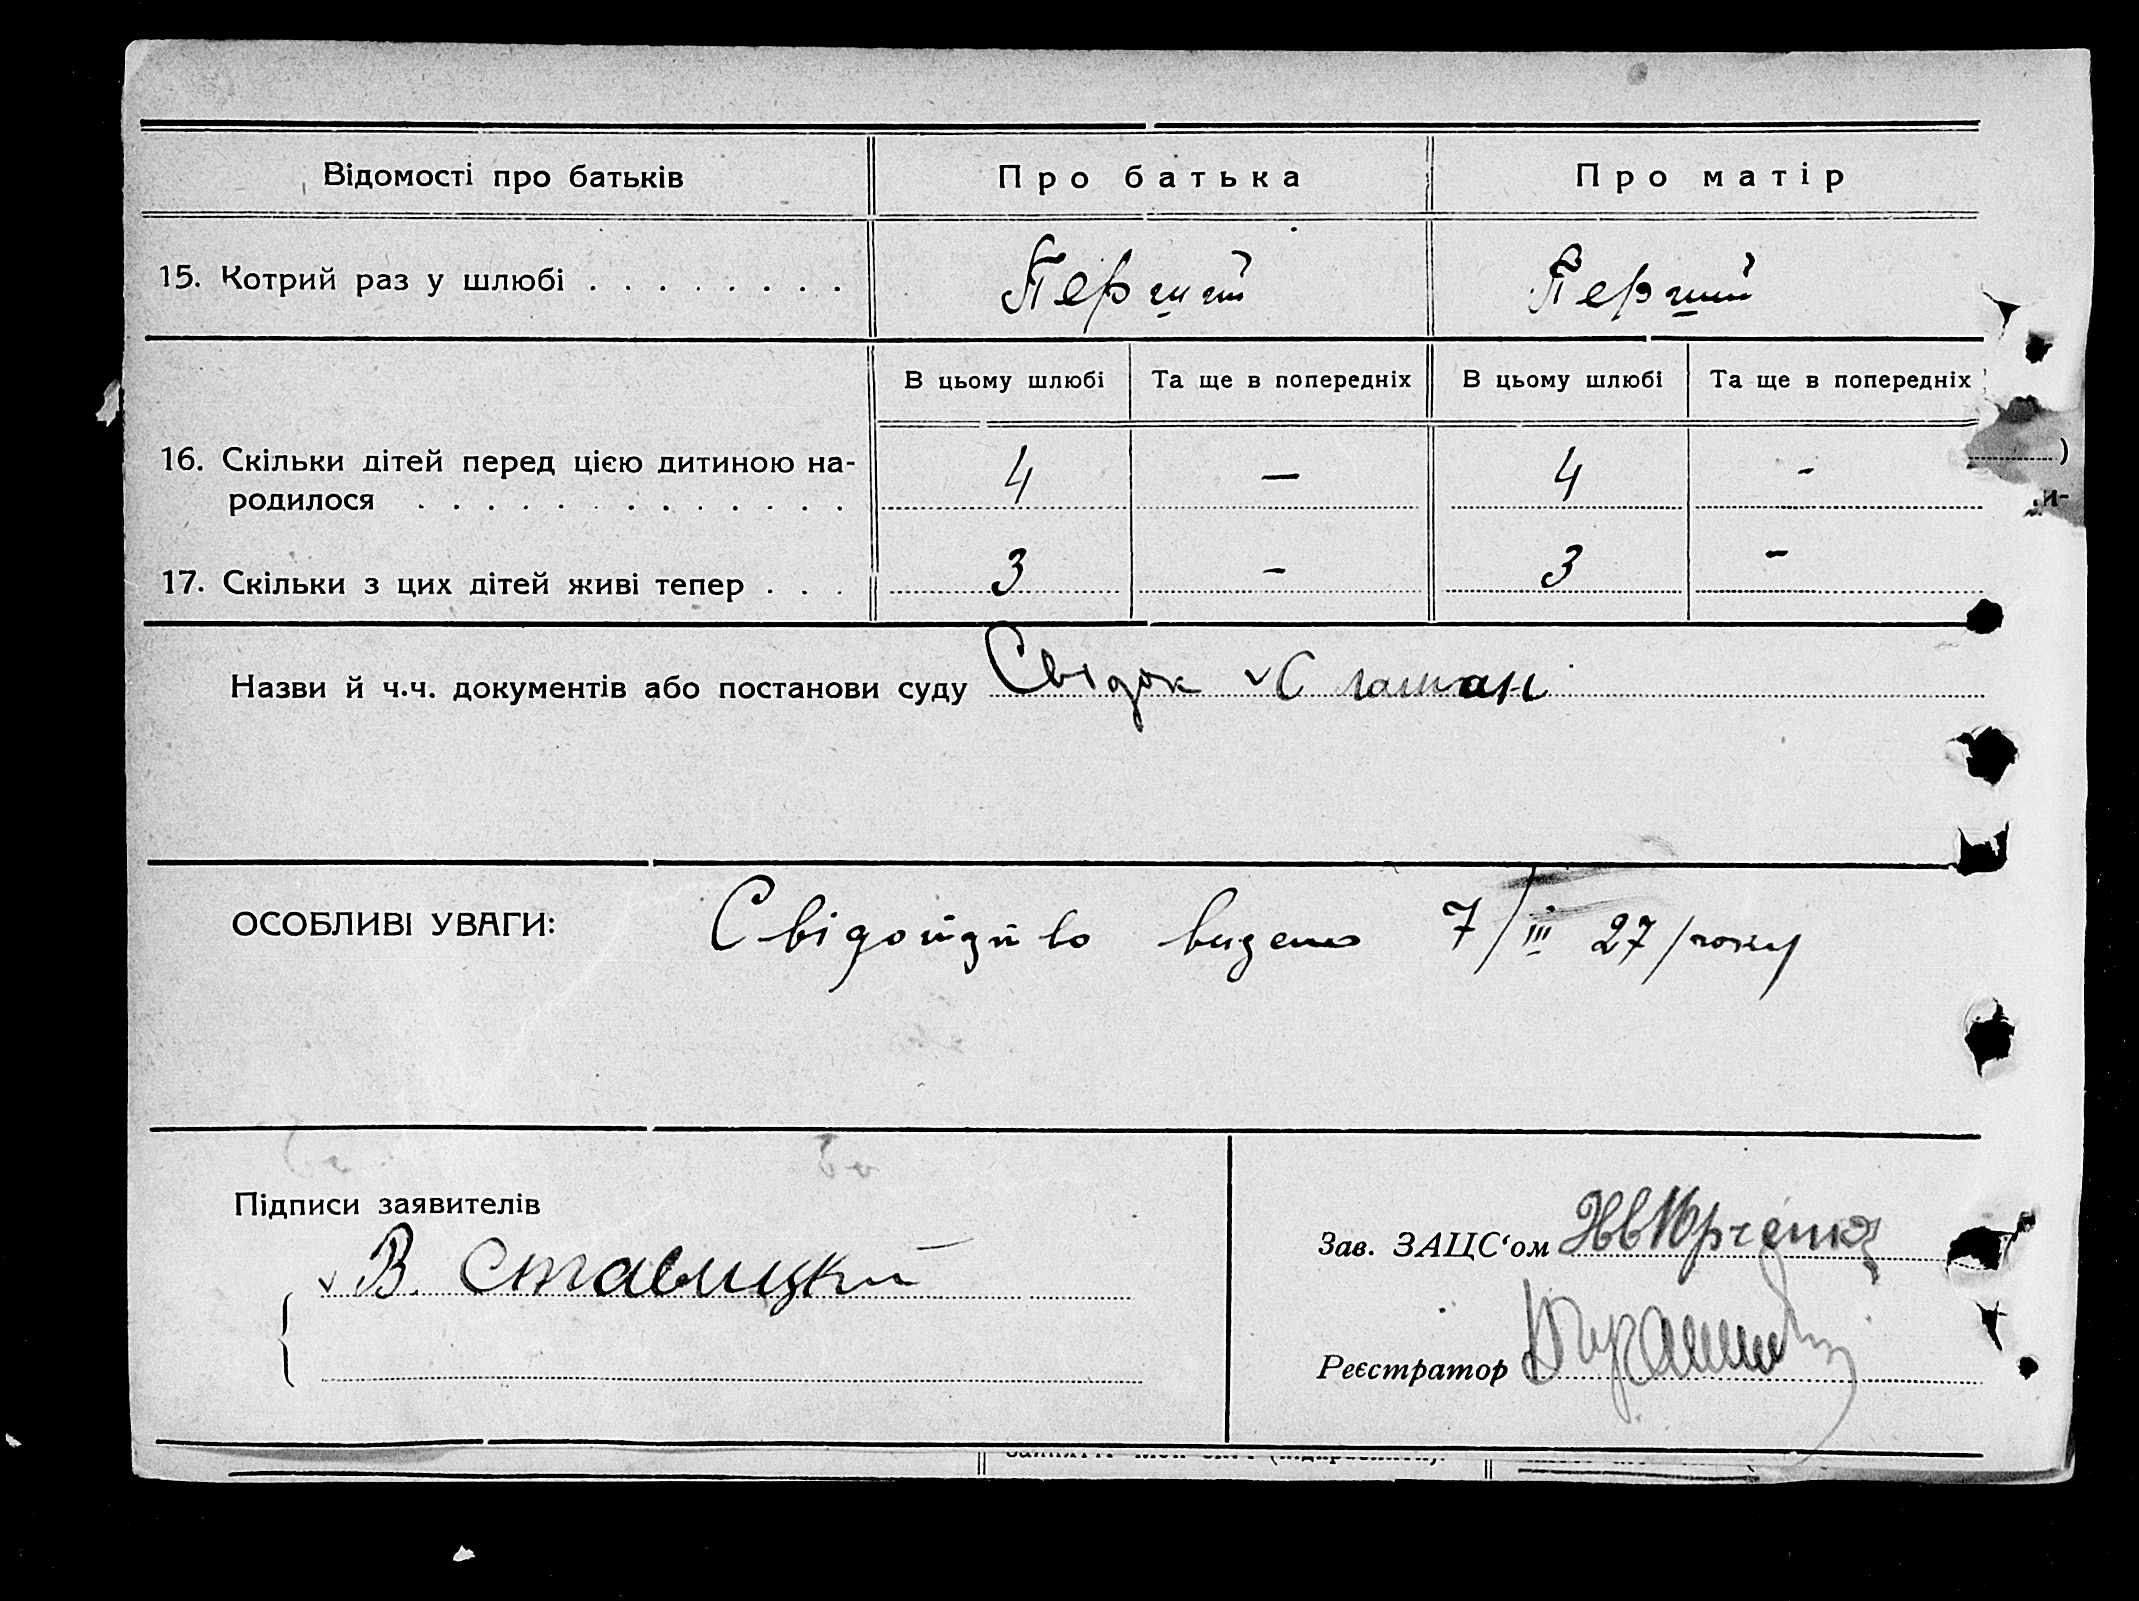 Відомості про батьків
Про батька
Про матір
15. Котрий раз у шлюбі . . . . . . . .
Перший
Перший
В цьому шлюбі
Та ще в попередніх
В цьому шлюбі
Та ще в попередніх
16. Скільки дітей перед цією дитиною на-
родилося . . . . . . . . . . . . .
4
—
4
-
)
и-
17. Скільки з цих дітей живі тепер . . .
3
-
3
-
Назви й ч.ч. документів або постанови суду Свідок
ОСОБЛИВІ УВАГИ: Свідоцтво видано 7/III 27/року
Підписи заявителів
В. Ставицкий
Зав. ЗАЦС‘ом Юрченко
Реєстратор